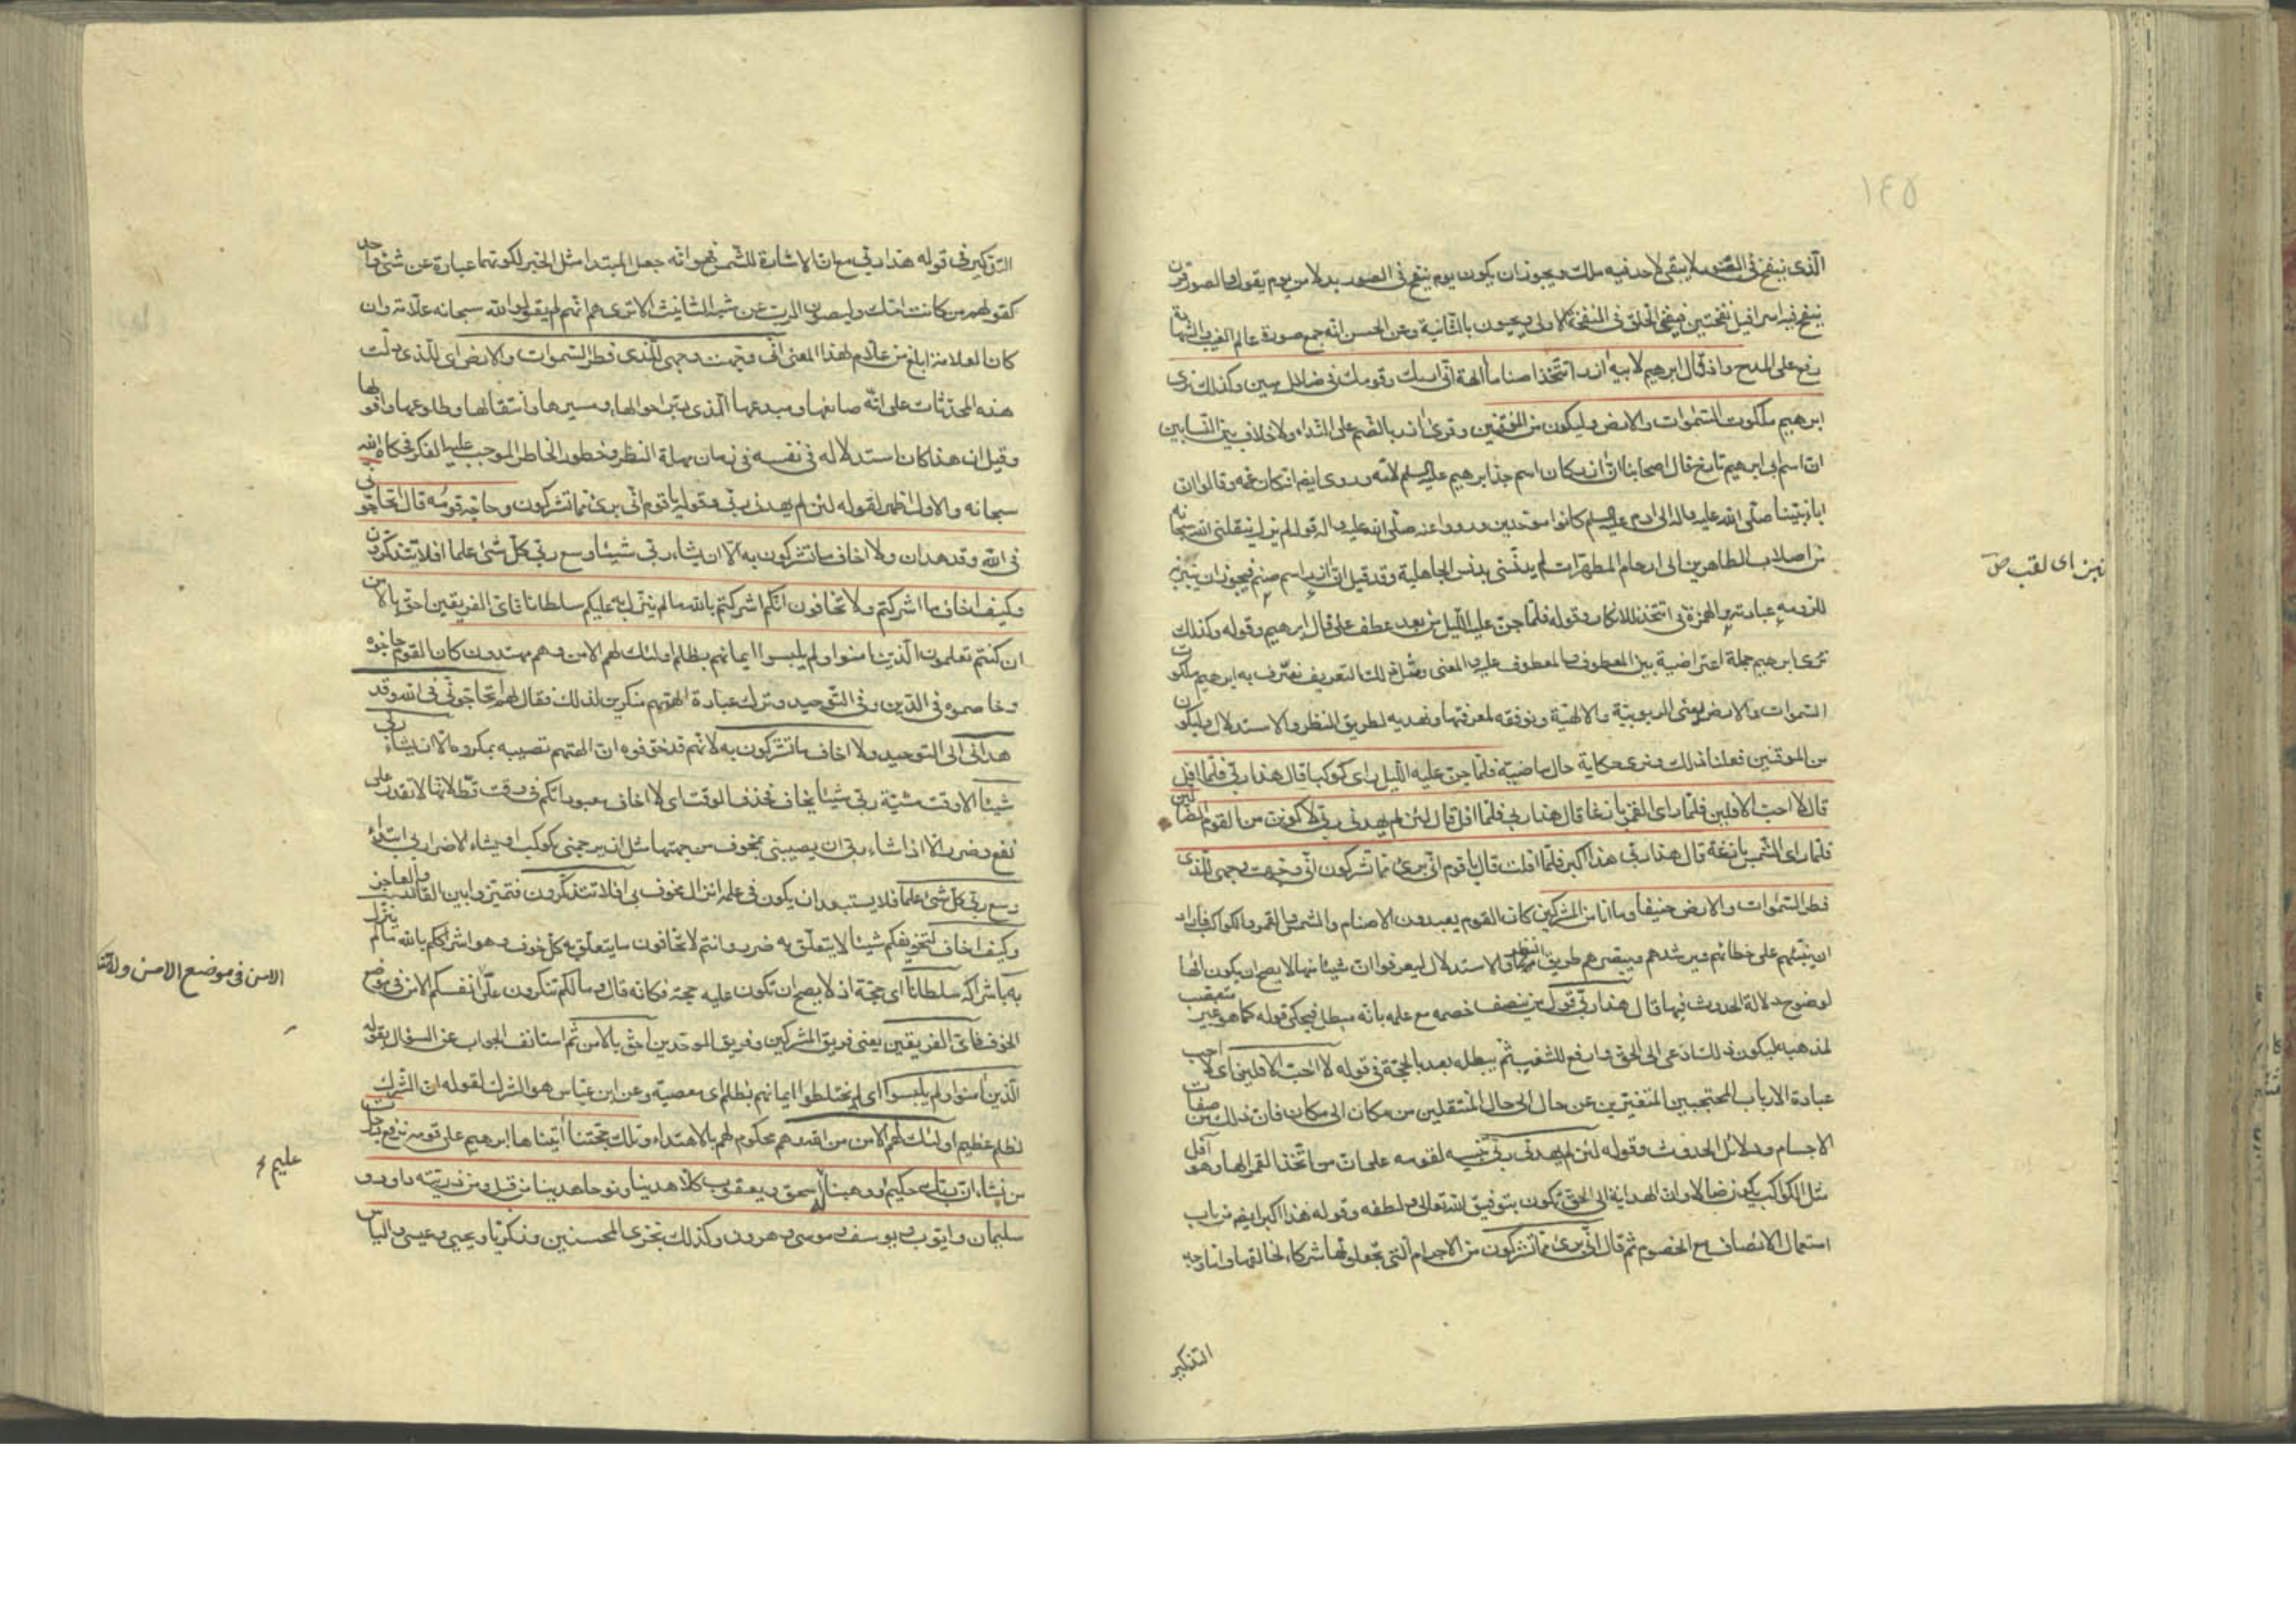 ١٤٥
الّذى ينفخ فى الصّور لا يبقى لاحد فيه ملك ويجوز ان يكون يوم ينفخ فى الصور بدلا من يوم يقول والصور قرن
ينفخ فيه اسرافيل نفختين فيفنى الخلق فى النفخة الاولى ويحيون بالثّانية وعن الحسن انّه جمع صورة عالم الغيب والشهادة
رفع على المدح واذ قال ابرهيم لابيه ازر اتتّخذ اصناما الهة انّى اريك وقومك فى ضلال مبين وكذلك نرى
ابرهيم ملكوت السّموات والارض وليكون من الموقنين وقرئ ازر بالضّم على النّداء ولا خلاف بين النسّابين
انّ اسم ابى ابرهيم تارخ قال اصحابنا انّ ازر كان اسم جدّ ابرهيم عليه السلم لامّه وروى ايضا انه كان عمّه وقالوا ان
اباء نبيّنا صلّى الله عليه واله الى ادم عليه السلم كانوا موحّدين ورووا عنه صلّى الله عليه واله قوله لم يزل ينقلنى الله سبحانه
من اصلاب الطاهرين الى ارحام المطهّرات لم يدنّسنى بدنس الجاهلية وقد قيل انّ ازر اسم صنم فيجوز ان ينبز به
للزومه عبادته والهمزة فى اتتّخذ للانكار وقوله فلمّا جنّ عليه اللّيل من بعد عطف على قال ابرهيم وقوله وكذلك
نرى ابرهيم جملة اعتراضية بين المعطوف والمعطوف عليه والمعنى ومثل ذلك التعريف نعرّف به ابرهيم ملكوت
السّموات والارض يعنى الربوبيّة والالهيّة ونوفقه لمعرفتها ونهديه لطريق النظر والاستدلال وليكون
من الموقنين فعلنا ذلك ونرى حكاية حال ماضية فلمّا جنّ عليه اللّيل راى كوكبا قال هذا ربّى فلمّا افل
قال لا احبّ الافلين فلمّا راى القمر بازغا قال هذا ربى فلمّا افل قال لئن لم يهدنى ربّى لاكوننّ من القوم الضّالين
فلمّا راى الشّمس بازغة قال هذا ربّى هذا اكبر فلمّا افلت قال يا قوم انّى برئ ممّا تشركون انّى وجّهت وجهى للّذى
فطر السّموات والارض حنيفا وما انا من المشركين كان القوم يعبدون الاصنام والشمس والقمر والكواكب فاراد
ان ينبّههم على خطائهم ويرشدهم ويبصّرهم طريق النظر والاستدلال ليعرفوا انّ شيئا منها لا يصح ان يكون الها
لوضوح دلالة الحدوث فيها قال هذا ربّى قول من ينصف خصمه مع علمه بانّه مبطل فيحكى قوله كما هو غير متعصّب
لمذهبه ليكون ذلك ادعى الى الحق وادفع للشغب ثمّ يبطله بعد بالحجّة فى قوله لا احبّ الافلين اى لا احبّ
عبادة الارباب المحتجبين المتغيّرين عن حال الى حال المنتقلين من مكان الى مكان فانّ ذلك من صفات
الاجسام ودلائل الحدوث وقوله لئن لم يهدنى ربّى تنبيه لقومه على انّ من اتّخذ القمر الها وهو آفل
مثل الكواكب يكون ضالا وانّ الهداية الى الحقّ تكون بتوفيق الله تعالى ولطفه وقوله هذا اكبر ايضا من باب
استعمال الانصاف مع الخصوم ثم قال انّى برئ ممّا تشركون من الاجرام الّتى تجعلونها شركاء لخالقها وامّا وجه
التذكير
التذكير فى قوله هذا ربّى مع انّ الاشارة للشّمس فهو انّه جعل المبتدا مثل الخبر لكونهما عبارة عن شئ واحد
كقولهم من كانت امّك وليصون الربّ عن شبه التانيث الا ترى هم انّهم لم يقولوا الله سبحانه علّامة وان
كان العلّامة ابلغ من علّام لهذا المعنى انّى وجّهت وجهى للّذى فطر السّموات والارض اى للّذى دلّت
هذه المحدثات على انّه صانعها ومبدعها الّذى دبّر احوالها ومسيرها وانتقالها وطلوعها وافولها
وقيل ان هذا كان استدلاله فى نفسه فى زمان مهلة النظر وخطور الخاطر الموجب عليه الفكر فحكاه الله
سبحانه والاول اظهر لقوله لئن لم يهدنى ربّى وقوله يا قوم انّى برئ ممّا تشركون وحاجّه قومه قال اتحاجّونّى
فى الله وقد هدان ولا اخاف ما تشركون به الّا ان يشاء ربّى شيئا وسع ربّى كلّ شئ علما افلا تتذكّرون
وكيف اخاف ما اشركتم ولا تخافون انّكم اشركتم بالله ما لم ينزّل به عليكم سلطانا فاىّ الفريقين احقّ بالامن
ان كنتم تعلمون الّذين امنوا ولم يلبسوا ايمانهم بظلم اولئك لهم الامن وهم مهتدون كان القوم حاجّوه
وخاصموه فى الدّين وفى التّوحيد وترك عبادة الهتهم منكرين لذلك فقال لهم اتحاجّونّى فى الله وقد
هدانى الى التوحيد ولا اخاف ما تشركون به لانّهم قد خوّفوه انّ الهتهم تصيبه بمكروه الّا ان يشاء ربى
شيئا الا وقت مشيّة ربّى شيئا يخاف فحذف الوقت اى لا اخاف معبوداتكم فى وقت قطّ لانّها لا تقدر على
نفع وضرر الّا اذا شاء ربّى ان يصيبنى بمخوف من جهتها مثل ان يرجمنى بكوكب او يشاء الاضرار بى ابتداء
وسع ربّى كلّ شئ علما فلا يستبعد ان يكون فى علمه انزال مخوف بى افلا تتذكّرون فتميّزوا بين القادر والعاجز
وكيف اخاف لتخويفكم شيئا لا يتعلّق به ضرر وانتم لا تخافون ما يتعلّق به كلّ خوف وهو اشراككم بالله ما لم ينزّل
به باشراكه سلطانا اى حجّة اذ لا يصح ان تكون عليه حجة فكانه قال وما لكم تنكرون علىّ الامن فى موضع
الخوف فاىّ الفريقين يعنى فريق المشركين وفريق الموحّدين احقّ بالامن ثمّ استانف الجواب عن السؤال بقوله
الّذين امنوا ولم يلبسوا اى لم يختلطوا ايمانهم بظلم اى معصية وعن ابن عبّاس هو الشرك لقوله انّ الشّرك
لظلم عظيم اولئك لهم الامن من الله وهم محكوم لهم بالاهتداء وتلك حجّتنا آتيناها ابرهيم على قومه نرفع درجات
من نشاء انّ ربّك حكيم ووهبنا له اسحق ويعقوب كلّا هدينا ونوحا هدينا من قبل ومن ذريته داود و
سليمان وايّوب ويوسف وموسى وهرون وكذلك نجزى المحسنين وزكريا ويحيى وعيسى والياس
نبز اى لقب ص
الامن فى موضع الامن ولا
عليم